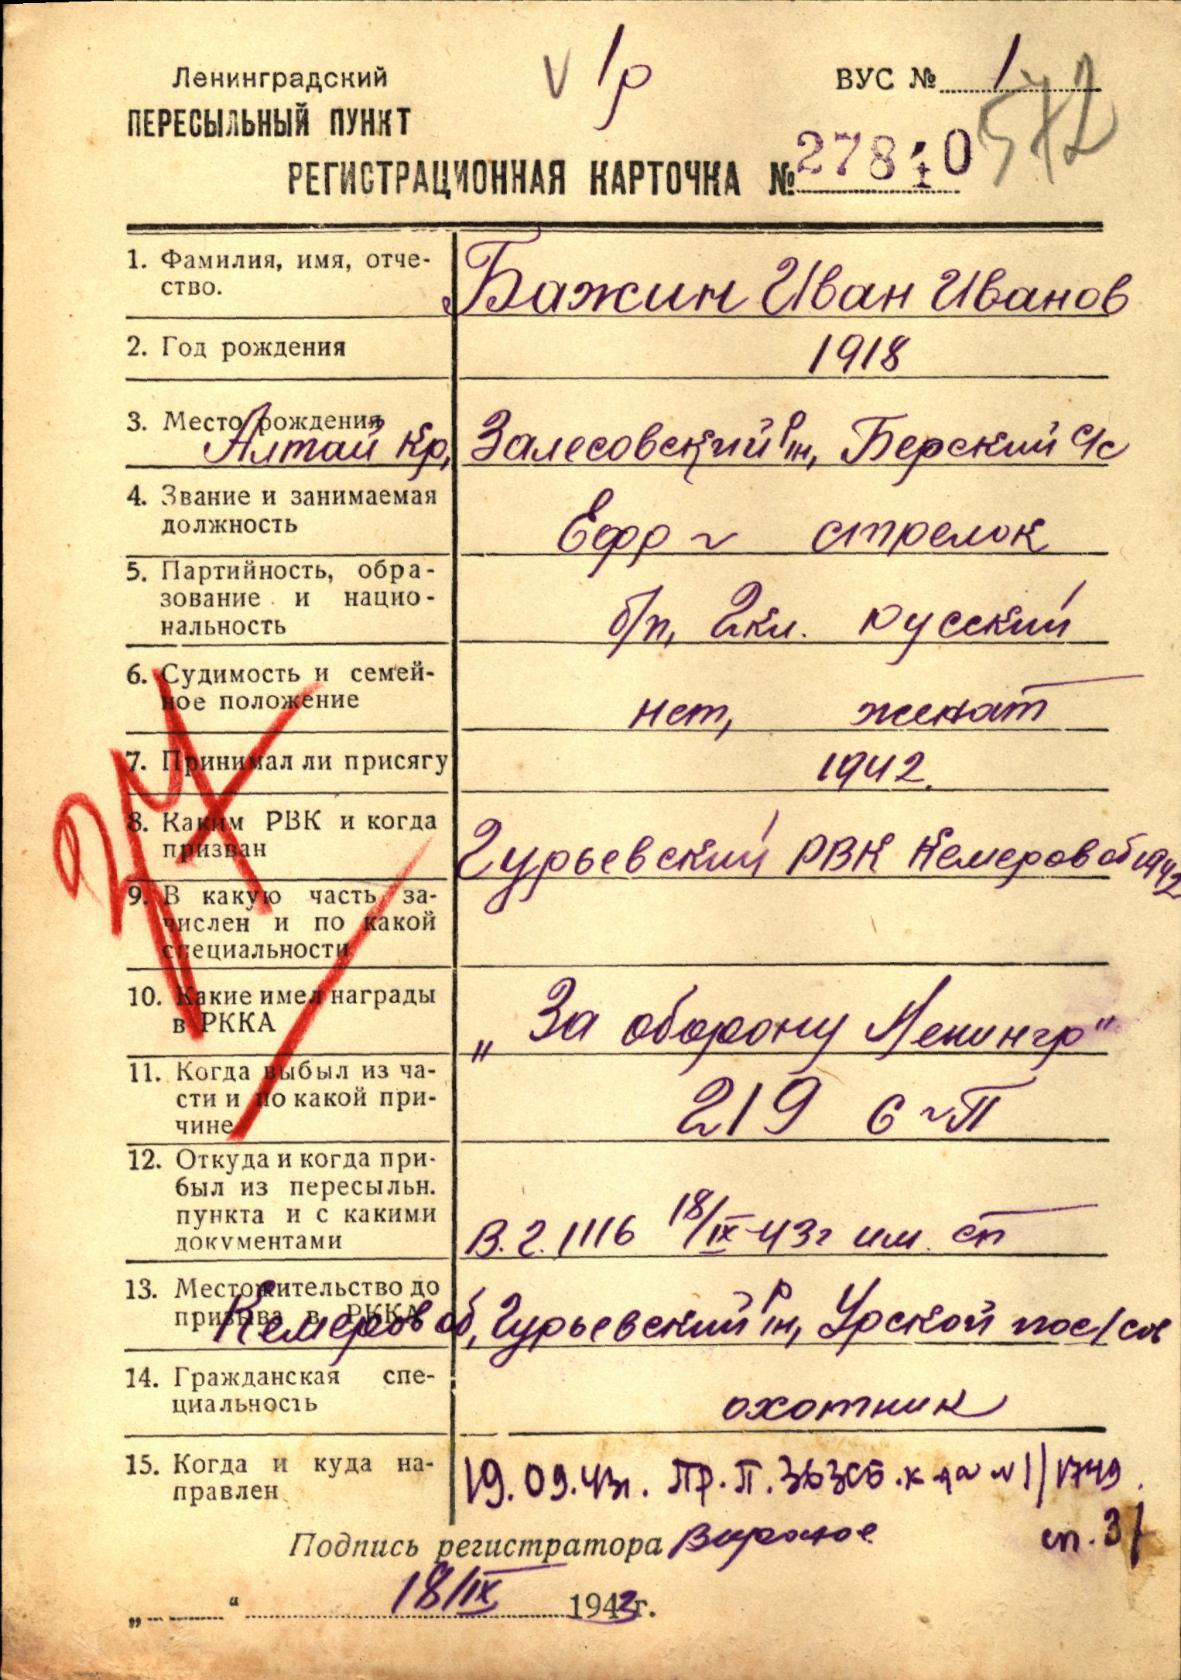 Ленинградский
ПЕРЕСЫЛЬНЫЙ ПУНКТ
V 1р
ВУС № 1
572
РЕГИСТРАЦИОННАЯ КАРТОЧКА № 27810
1. Фамилия, имя, отче-
ство.
Бажин Иван Иванов
2. Год рождения
1918
3. Место рождения
Алтай кр, Залесовский р/н, Берский с/с
4. Звание и занимаемая
должность
Ефр ~ стрелок
5. Партийность, обра-
зование и нацио-
нальность
б/п, 2кл. русский
6. Судимость и семей-
ное положение
нет, женат
7. Принимал ли присягу
1942.
8. Каким РВК и когда
призван
Гурьевский РВК Кемеров об 1942
9. В какую часть за-
числен и по какой
специальности
10. Какие имел награды
в РККА
„За оборону Ленингр"
11. Когда выбыл из ча-
сти и по какой при-
чине
219 с~п
12. Откуда и когда при-
был из пересыльн.
пункта и с какими
документами
В.г. 1116 18/IX-43г им. сп
13. Местожительство до
призыва в РККА
Кемеров об, Гурьевский р/н, Урской пос/сов
14. Гражданская спе-
циальность
охотник
15. Когда и куда на-
правлен
19.09.43г. Пр.П. 363СБ. 11/1749.
сп. 31
Подпись регистратора
„ “ 18/IX 1943г.